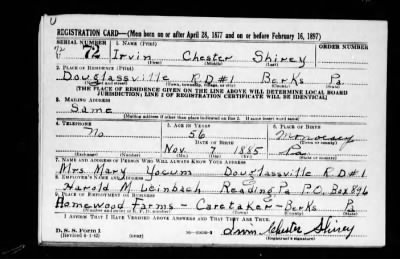 U
REGISTRATION CARD—(Men born on or after April 28, 1877 and on or before February 16, 1897)
SERIAL NUMBER 1. NAME (Print)
U 72 Irvin Chester Shirey
(First) (Middle) (Last)
2. PLACE OF RESIDENCE (Print)
Douglassville R.D#1 Berks Pa.
(Number and street) (Town, township, village, or city) (County) (State)
[THE PLACE OF RESIDENCE GIVEN ON THE LINE ABOVE WILL DETERMINE LOCAL BOARD
JURISDICTION; LINE 2 OF REGISTRATION CERTIFICATE WILL BE IDENTICAL]
3. MAILING ADDRESS
Same
[Mailing address if other than place indicated on line 2. If same insert word same]
4. TELEPHONE 5. AGE IN YEARS 6. PLACE OF BIRTH
No 56
DATE OF BIRTH (Town or county)
Nov 7 1885 Pa
(Exchange) (Number) (Mo.) (Day) (Yr.) (State or country)
7. NAME AND ADDRESS OF PERSON WHO WILL ALWAYS KNOW YOUR ADDRESS
Mrs Mary Yocum Douglassville R.D#1
8. EMPLOYER'S NAME AND ADDRESS
Harold M Leinbach Reading Pa P.O. Box 896
9. PLACE OF EMPLOYMENT OR BUSINESS
Homewood Farms - Caretaker - Berks Pa
(Number and street or R. F. D. number) (Town) (County) (State)
I AFFIRM THAT I HAVE VERIFIED ABOVE ANSWERS AND THAT THEY ARE TRUE.
D. S. S. Form 1
(Revised 4-1-42) (over) Irvin Chester Shirey
(Registrant's signature)